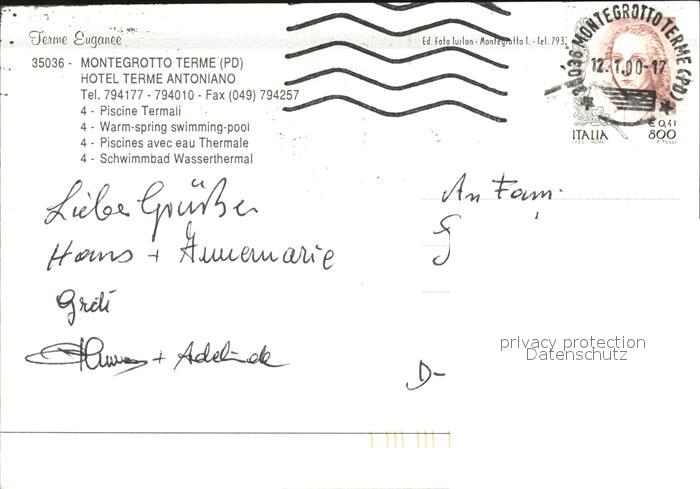 Terme Euganee
Ed. Foto Turlon - Montegrotto T. - Tel. 793
35036 - MONTEGROTTO TERME (PD)
HOTEL TERME ANTONIANO
Tel. 794177 - 794010 - Fax (049) 794257
4 - Piscine Termali
4 - Warm-spring swimming-pool
4 - Piscines avec eau Thermale
4 - Schwimmbad Wasserthermal
35036 MONTEGROTTO TERME (PD)
12.1.00-17
€ 0,41
ITALIA 800
Liebe Grüße
Hans + Annemarie
Greti
+ Adelinde
An Fam.
G
D-
privacy protection
Datenschutz